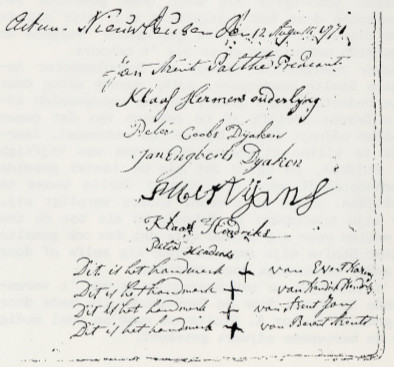 Actum Nieuwleusen Den 12 Augusti 1771
Jan Arent Palthe Predicant
Klaas Hermens ouderlyng
Peter Coobs Dyaken
Jan Engberts Dyaken
Albert
Klaas Hendriks
Peter Hendriks
Dit is het handmerk + van Evert
Dit is het handmerk + van Hendrik Hendriks
Dit is het handmerk + van Arent Jans
Dit is het handmerk + van Berent Arents